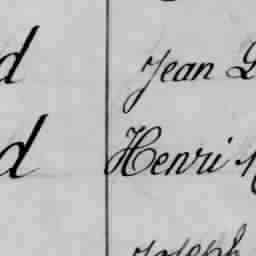 d Jean
d Henri
Joseph